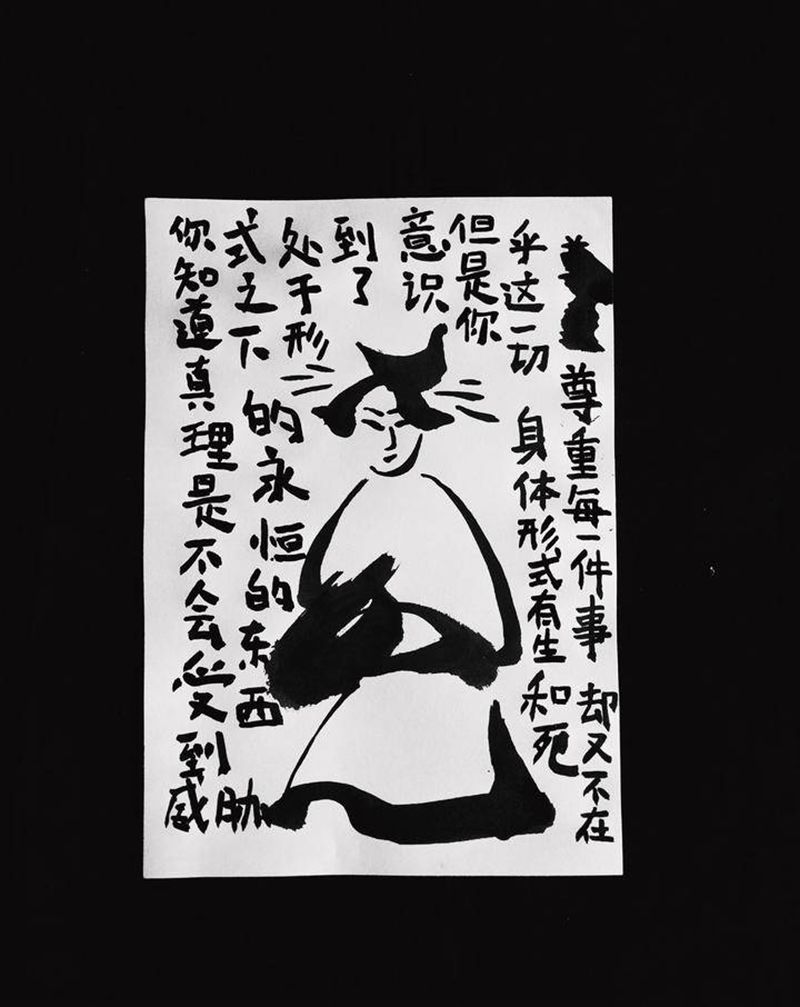 尊重每一件事 却又不在
乎这一切 身体形式有生和死
但是你
意识
到了
处于形
式之下的永恒的东西
你知道真理是不会受到威胁